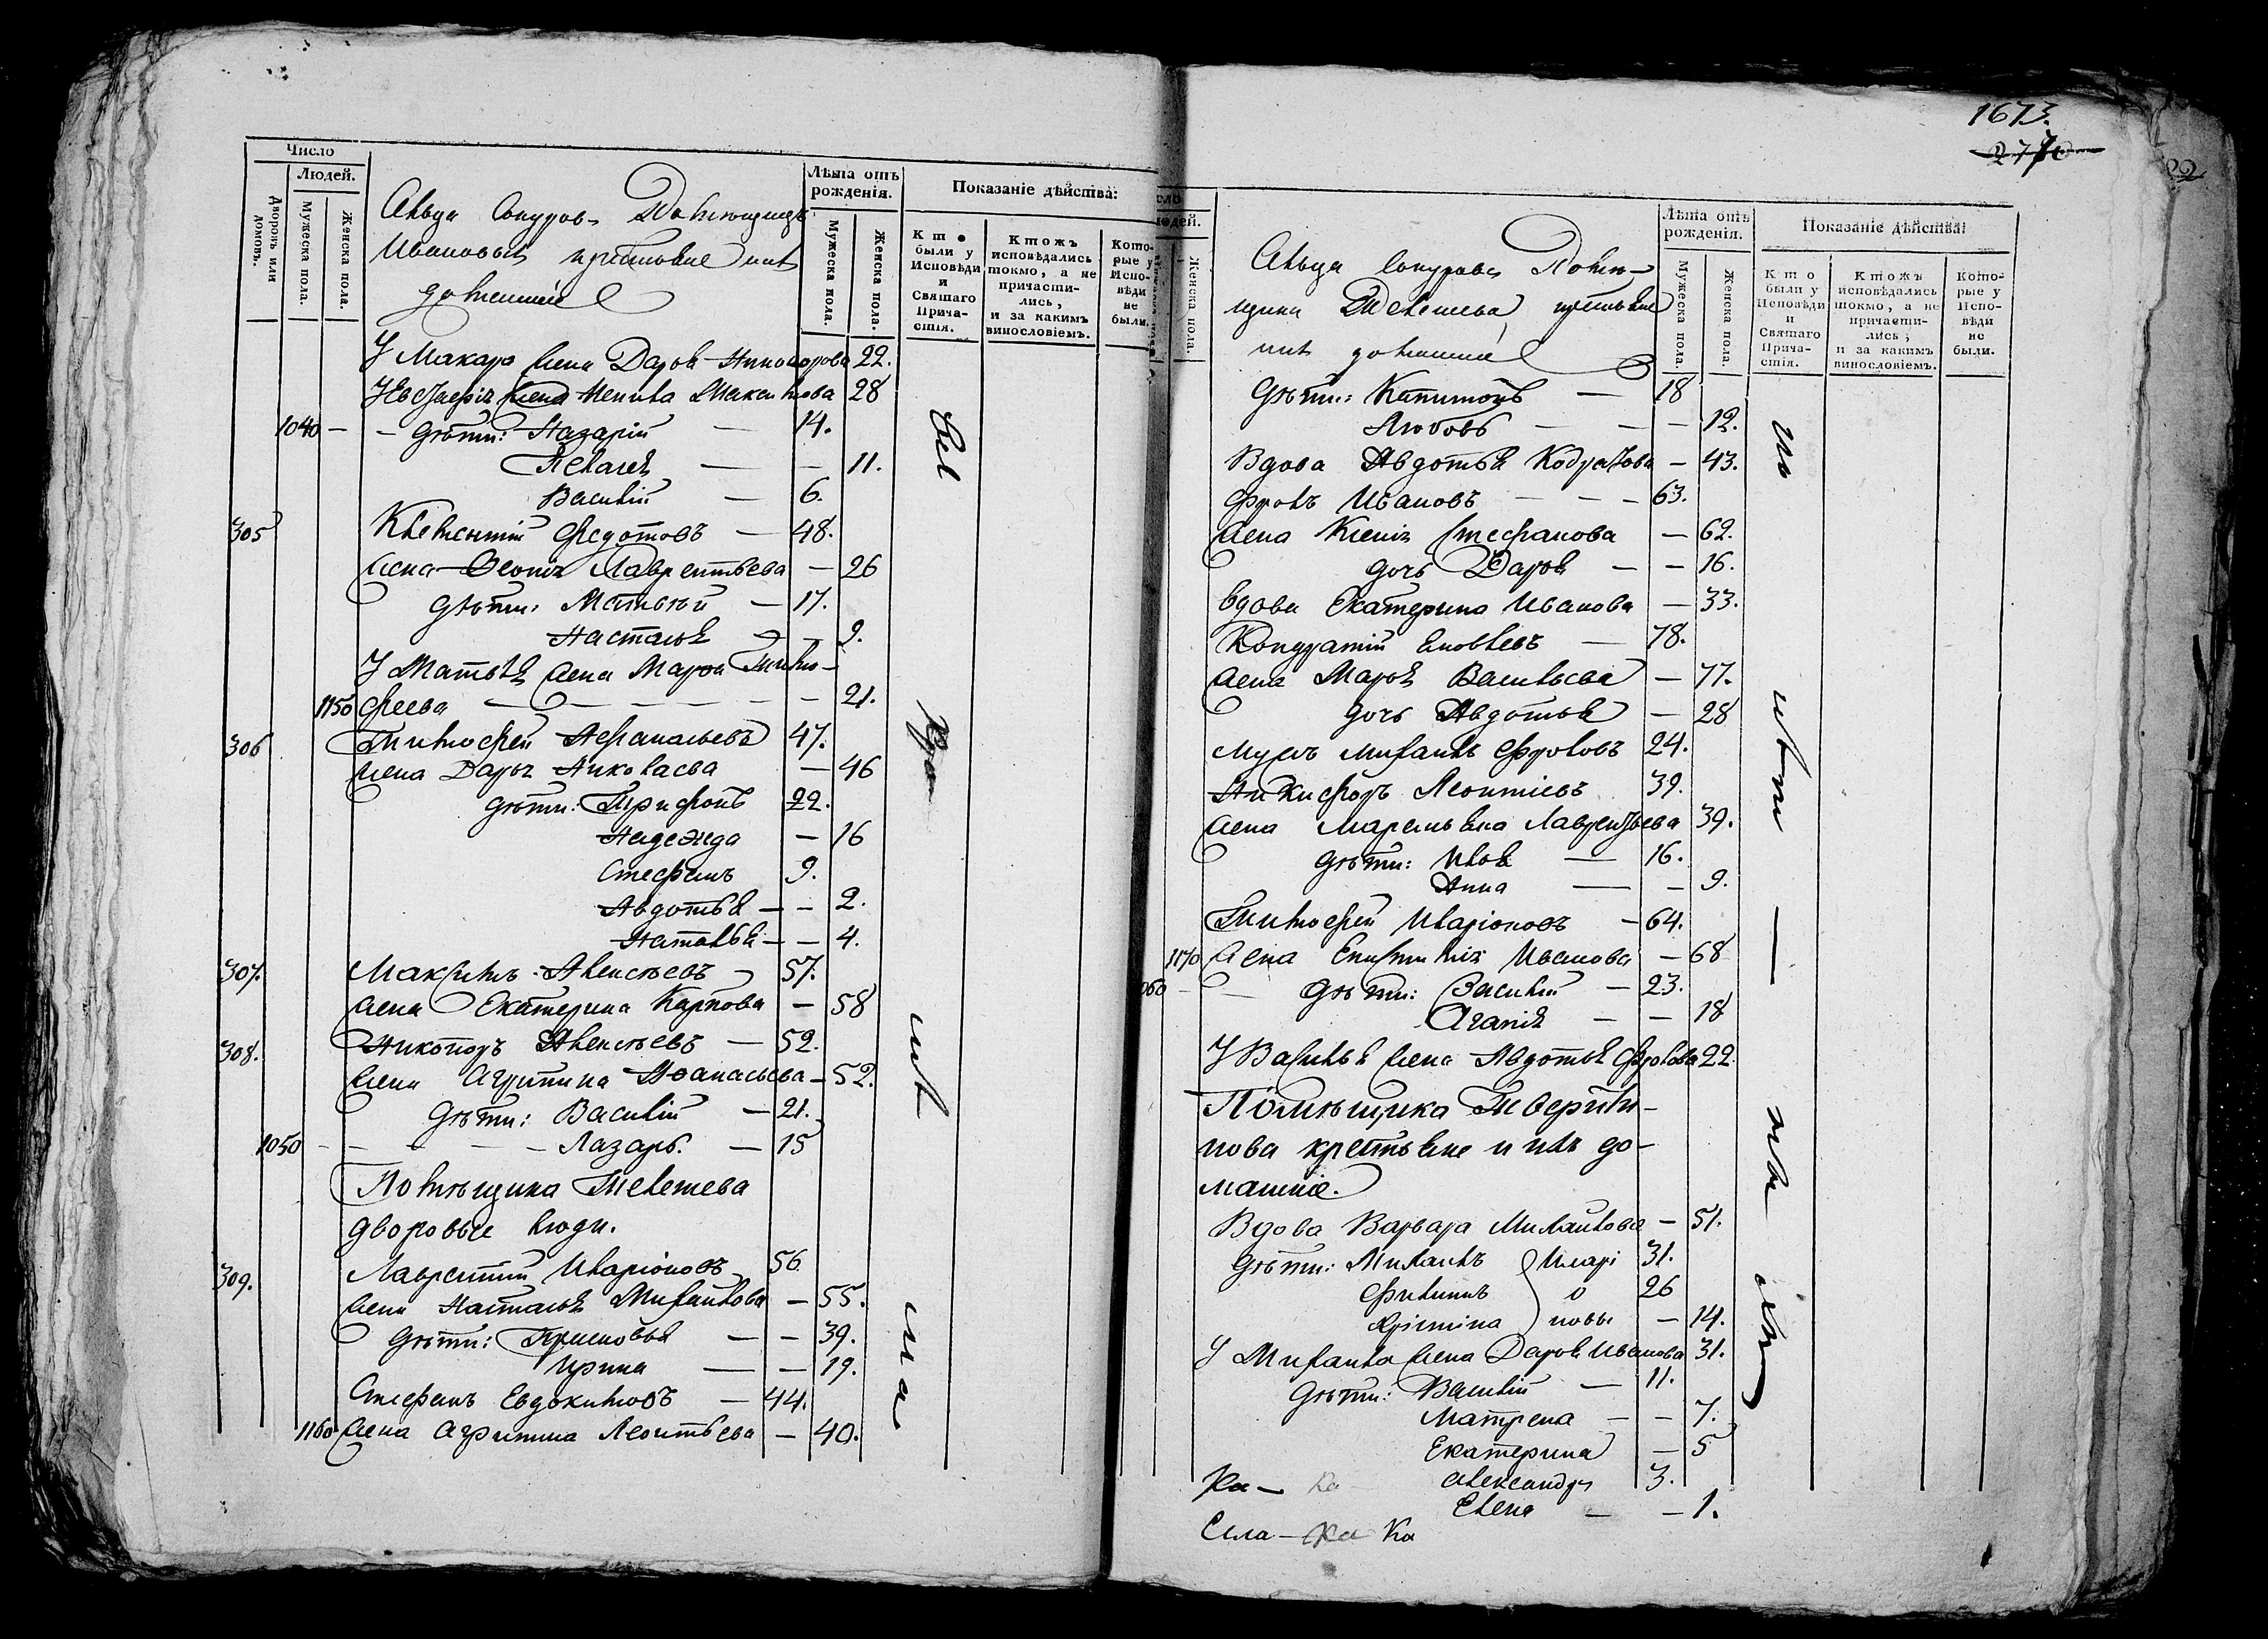 Число
Людей.
Дворовъ или домовъ.
Мужеска пола.
Женска пола.
Лѣта отъ рожденія.
Мужеска пола.
Женска пола.
Показаніе дѣйства:
Кто были у Исповѣди и Святаго Причастія.
Ктожъ исповѣдались токмо, а не причастились, и за какимъ винословіемъ.
Которые у Исповѣди не были.
Сельца
Ивановыхъ крестьяне ихъ
домашніе
У Макара жена Дарья Никанорова 22.
жена Максимова 28
1040 — дѣти: Назарій — 14.
Пелагея — — 11.
Василій — 6.
305 Климентій Федотовъ — 48.
жена Лаврентьева — 26
дѣти: Матвѣй — 17.
Настасья — 9.
У Матвѣя жена Марѳа Тимо-
1150 феева — 21.
306 Тимофей Афанасьевъ 47.
жена Дарья Николаева — 46
дѣти: Трифонъ 22.
Надежда — 16
Стефанъ 9.
Авдотья — — 2.
Наталья — — 4.
307. Максимъ Алексѣевъ — 57.
жена Екатерина Карпова — 58
308. Никаноръ Алексѣевъ — 52.
жена Агрипина Афанасьева — 52.
дѣти: Василій — 21.
1050 — Лазарь. — 15
Помѣщика Телешева
дворовые люди.
309. Лаврентій Иларіоновъ 56
жена Настасья Михайлова — 55.
дѣти: Прасковья — — 39.
Ирина — — 19.
Стефанъ Евдокимовъ — 44.
1160 жена Агрипина Леонтьева — 40.
1673.
Женска пола.
Лѣта отъ рожденія.
Мужеска пола.
Женска пола.
Показаніе дѣйства:
Кто были у Исповѣди и Святаго Причастія.
Ктожъ исповѣдались токмо, а не причастились, и за какимъ винословіемъ.
Которые у Исповѣди не были.
Сельца Помѣ-
щика Телешева крестьяне
ихъ домашніе
дѣти: Капитонъ — 18
Любовь — — 12.
Вдова Авдотья Кодратова — 43.
Фролъ Ивановъ — 63.
жена Ксенія Стефанова — 62.
дочь Дарья — — 16.
вдова Екатерина Иванова — 33.
Кондратій Яковлевъ — 78.
жена Марья Васильева — 77.
дочь Авдотья — 28
мужъ Михаилъ Фроловъ 24.
Никифоръ Леонтіевъ 39.
жена Маремьяна Лаврентьева 39.
дѣти: Илья — 16.
Анна — — 9.
Тимофей Иларіоновъ — 64.
1170 жена Епистимія Иванова — 68
060 — дѣти: Василій — 23.
Агапія — — 18
У Василья жена Авдотья Фролова 22.
Помѣщика
нова крестьяне и ихъ до-
машніе.
Вдова Варвара Михайлова — 51.
дѣти: Михаилъ Иларі 31.
Филипъ о 26
Хрістіна новы — 14.
У Михаила жена Дарья Иванова 31.
дѣти: Василій — 11.
Матрена — — 7.
Екатерина — 5
Александръ 3.
Елена — — 1.
Ка —
Сила — Ка Ка